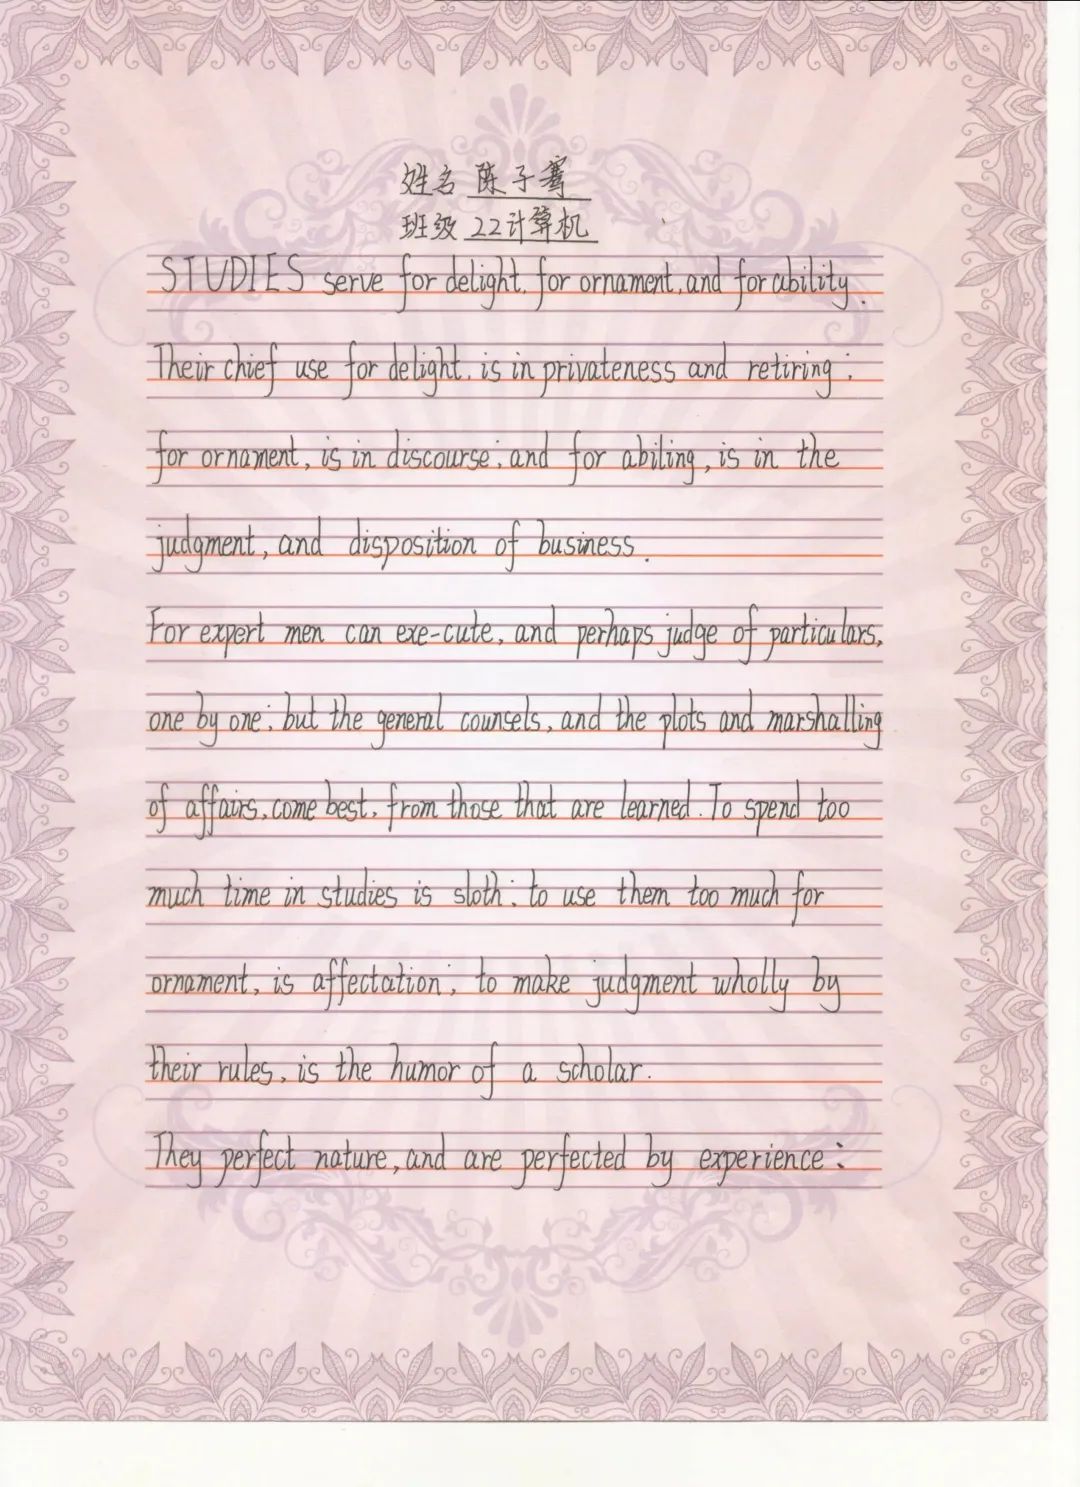 姓名 陈子骞
班级 22计算机
STUDIES serve for delight, for ornament, and for ability.
Their chief use for delight, is in privateness and retiring;
for ornament, is in discourse; and for abiling, is in the
judgment, and disposition of business.
For expert men can exe-cute, and perhaps judge of particulars,
one by one; but the general counsels, and the plots and marshalling
of affairs, come best, from those that are learned. To spend too
much time in studies is sloth; to use them too much for
ornament, is affectation; to make judgment wholly by
their rules, is the humor of a scholar.
They perfect nature, and are perfected by experience: